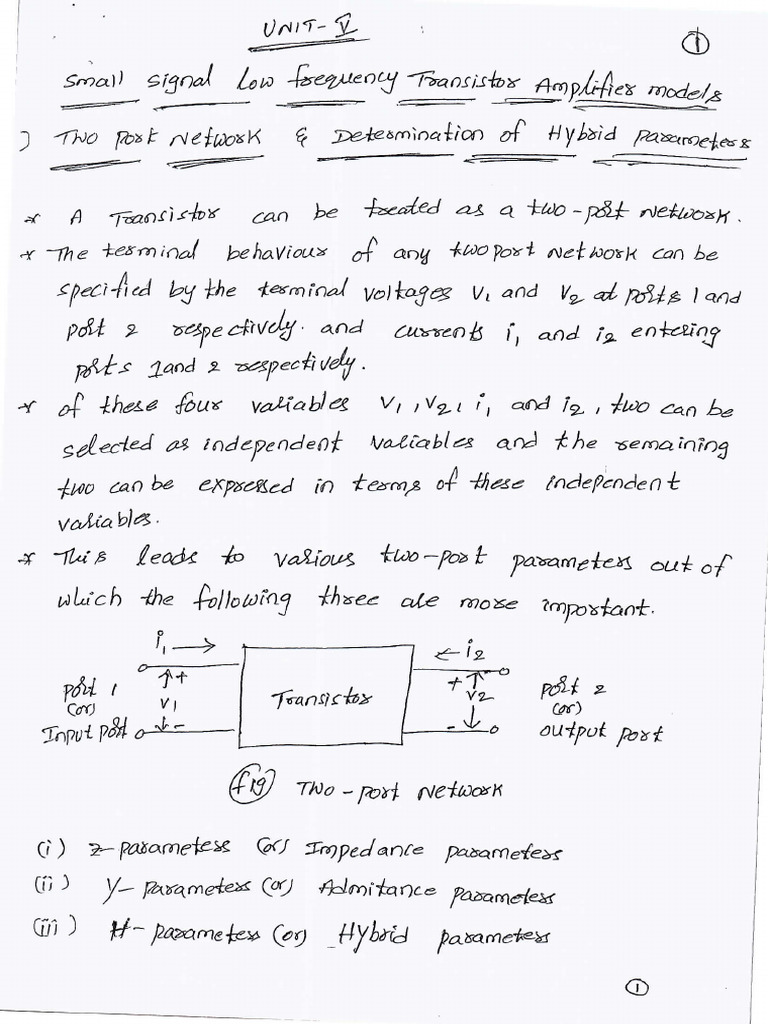 UNIT-V
1
Small signal Low frequency Transistor Amplifier models
) Two port Network & Determination of Hybrid parameters
* A Transistor can be treated as a two-port network.
* The terminal behaviour of any two port network can be
specified by the terminal voltages V1 and V2 at ports 1 and
port 2 respectively. and currents i1 and i2 entering
ports 1 and 2 respectively.
* of these four variables V1, V2, i1 and i2, two can be
selected as independent variables and the remaining
two can be expressed in terms of these independent
variables.
* This leads to various two-port parameters out of
which the following three are more important.
i1 →
← i2
port 1
(or)
Input port
+
V1
-
Transistor
+
V2
-
port 2
(or)
output port
fig Two-port Network
(i) z-parameters (or) Impedance parameters
(ii) Y-parameters (or) Admitance parameters
(iii) H-parameters (or) Hybrid parameters
1